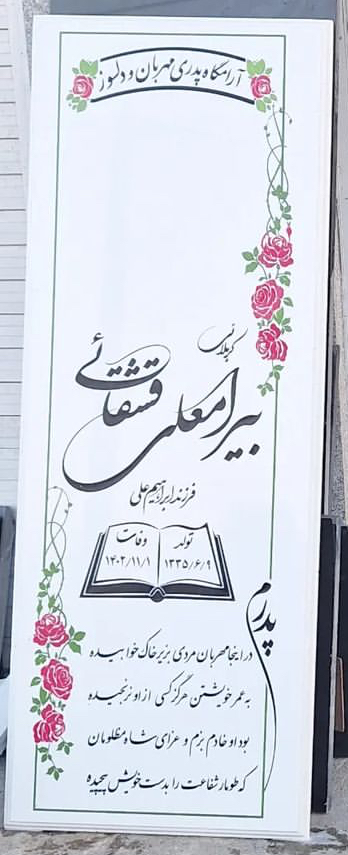 آرامگاه پدری مهربان و دلسوز
کربلائی
بیرامعلی قشقائی
فرزند ابراهیم علی
تولد
۱۳۳۵/۶/۹
وفات
۱۴۰۲/۱۱/۱
پدرم
در اینجا مهربان مردی بزیر خاک خوابیده
به عمر خویشتن هرگز کسی از او نرنجیده
بود او خادم بزم و عزای شاه مظلومان
که طومار شفاعت را بدست خویش پیچیده